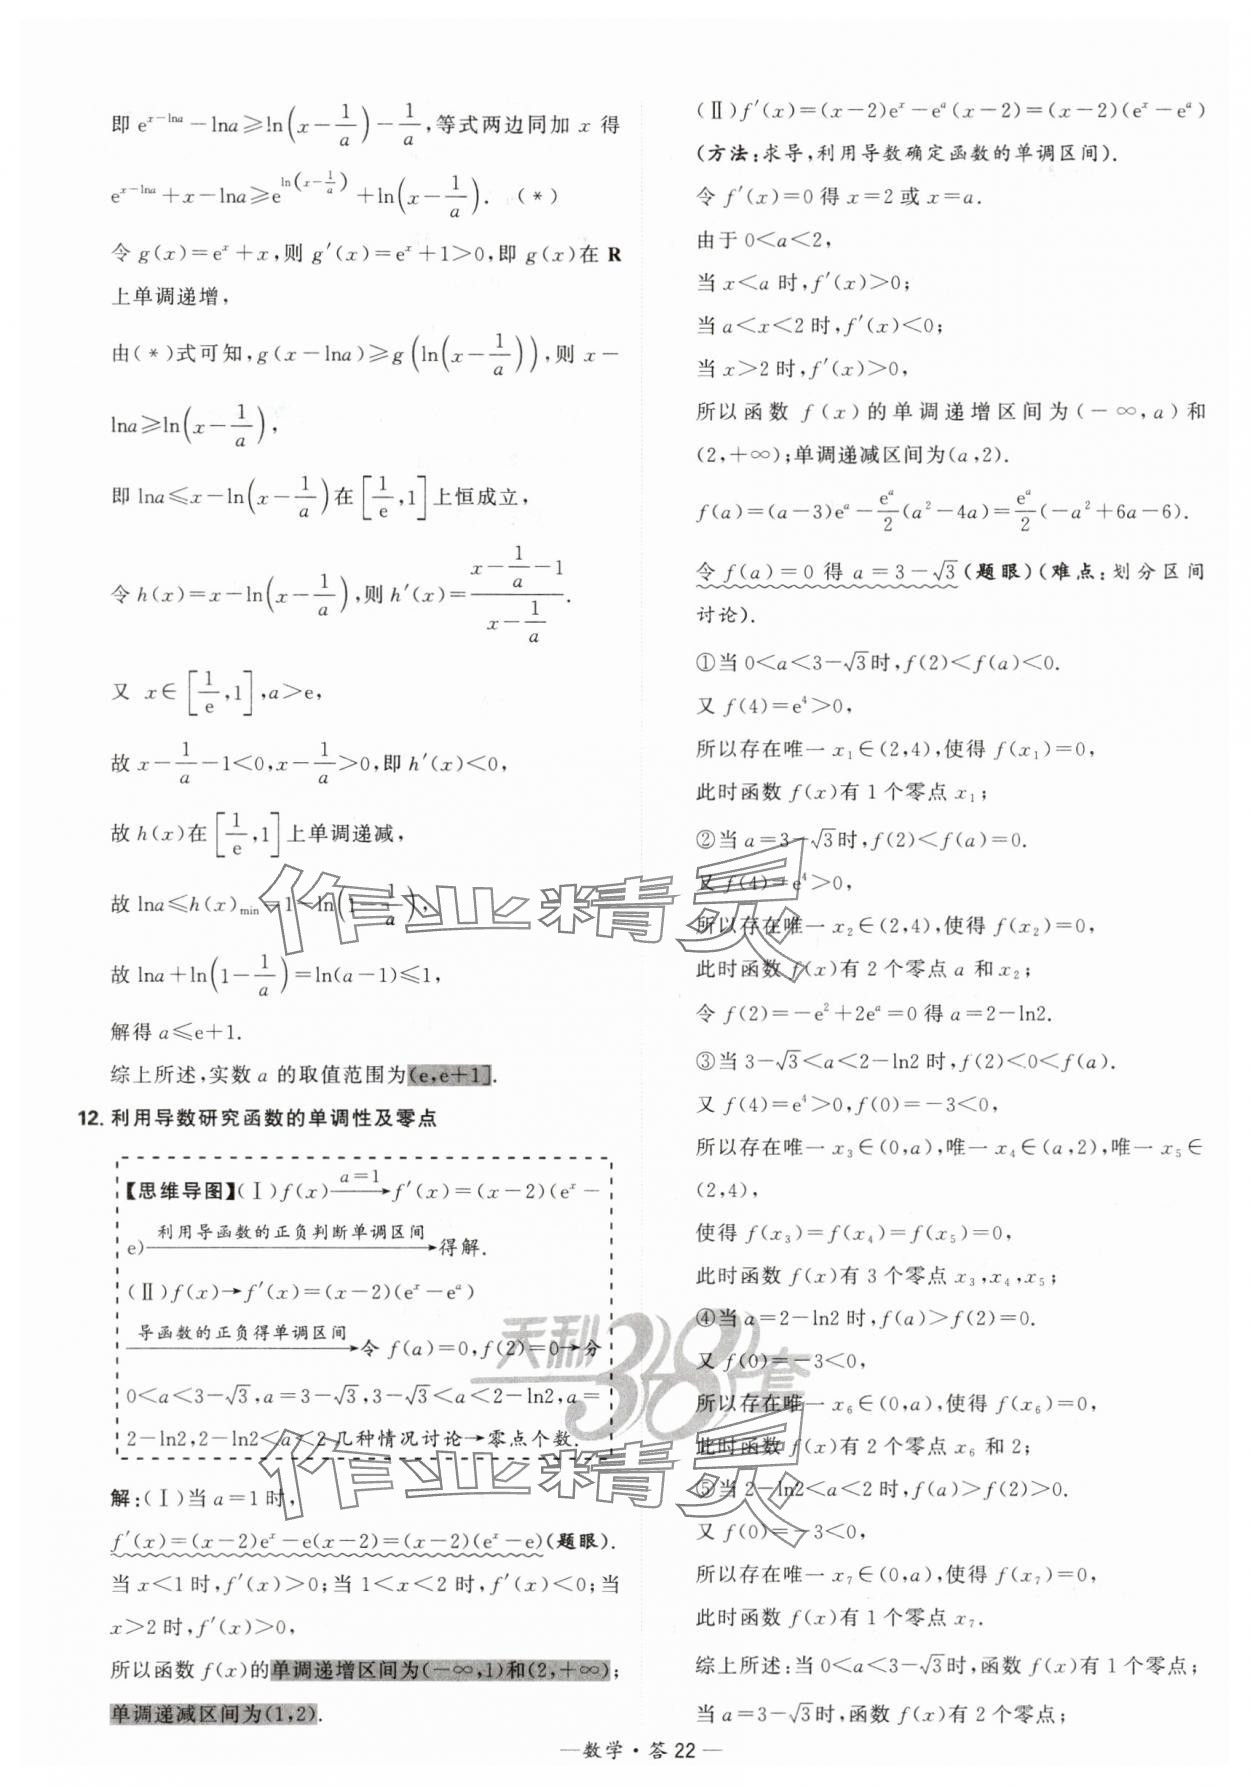 即 e^{x-lna}-lna≥ln(x-1/a)-1/a,等式两边同加 x 得
e^{x-lna}+x-lna≥e^{ln(x-1/a)}+ln(x-1/a). (*)
令 g(x)=e^x+x,则 g′(x)=e^x+1>0,即 g(x)在 R
上单调递增,
由(*)式可知,g(x-lna)≥g(ln(x-1/a)),则 x-
lna≥ln(x-1/a),
即 lna≤x-ln(x-1/a)在[1/e,1]上恒成立,
令 h(x)=x-ln(x-1/a),则 h′(x)=(x-1/a-1)/(x-1/a).
又 x∈[1/e,1],a>e,
故 x-1/a-1<0,x-1/a>0,即 h′(x)<0,
故 h(x)在[1/e,1]上单调递减,
故 lna≤h(x)_{min}=1-ln(1-1/a),
故 lna+ln(1-1/a)=ln(a-1)≤1,
解得 a≤e+1.
综上所述,实数 a 的取值范围为(e,e+1].
12. 利用导数研究函数的单调性及零点
【思维导图】(Ⅰ)f(x) a=1→ f′(x)=(x-2)(e^x-
e) 利用导函数的正负判断单调区间→得解.
(Ⅱ)f(x)→f′(x)=(x-2)(e^x-e^a)
导函数的正负得单调区间→令 f(a)=0,f(2)=0→分
0<a<3-√3,a=3-√3,3-√3<a<2-ln2,a=
2-ln2,2-ln2<a<2 几种情况讨论→零点个数.
解:(Ⅰ)当 a=1时,
f′(x)=(x-2)e^x-e(x-2)=(x-2)(e^x-e)(题眼).
当 x<1 时,f′(x)>0;当 1<x<2 时,f′(x)<0;当
x>2 时,f′(x)>0,
所以函数 f(x)的单调递增区间为(-∞,1)和(2,+∞);
单调递减区间为(1,2).
(Ⅱ)f′(x)=(x-2)e^x-e^a(x-2)=(x-2)(e^x-e^a)
(方法:求导,利用导数确定函数的单调区间).
令 f′(x)=0 得 x=2 或 x=a.
由于 0<a<2,
当 x<a 时,f′(x)>0;
当 a<x<2 时,f′(x)<0;
当 x>2 时,f′(x)>0,
所以函数 f(x)的单调递增区间为(-∞,a)和
(2,+∞);单调递减区间为(a,2).
f(a)=(a-3)e^a-e^a/2(a^2-4a)=e^a/2(-a^2+6a-6).
令 f(a)=0 得 a=3-√3(题眼)(难点:划分区间
讨论).
①当 0<a<3-√3时,f(2)<f(a)<0.
又 f(4)=e^4>0,
所以存在唯一 x_1∈(2,4),使得 f(x_1)=0,
此时函数 f(x)有 1 个零点 x_1;
②当 a=3-√3时,f(2)<f(a)=0.
又 f(4)=e^4>0,
所以存在唯一 x_2∈(2,4),使得 f(x_2)=0,
此时函数 f(x)有 2 个零点 a 和 x_2;
令 f(2)=-e^2+2e^a=0 得 a=2-ln2.
③当 3-√3<a<2-ln2 时,f(2)<0<f(a).
又 f(4)=e^4>0,f(0)=-3<0,
所以存在唯一 x_3∈(0,a),唯一 x_4∈(a,2),唯一 x_5∈
(2,4),
使得 f(x_3)=f(x_4)=f(x_5)=0,
此时函数 f(x)有 3 个零点 x_3,x_4,x_5;
④当 a=2-ln2 时,f(a)>f(2)=0.
又 f(0)=-3<0,
所以存在唯一 x_6∈(0,a),使得 f(x_6)=0,
此时函数 f(x)有 2 个零点 x_6 和 2;
⑤当 2-ln2<a<2 时,f(a)>f(2)>0.
又 f(0)=-3<0,
所以存在唯一 x_7∈(0,a),使得 f(x_7)=0,
此时函数 f(x)有 1 个零点 x_7.
综上所述:当 0<a<3-√3时,函数 f(x)有 1 个零点;
当 a=3-√3时,函数 f(x)有 2 个零点;
—数学·答 22—
作业精灵
天利38套
作业精灵